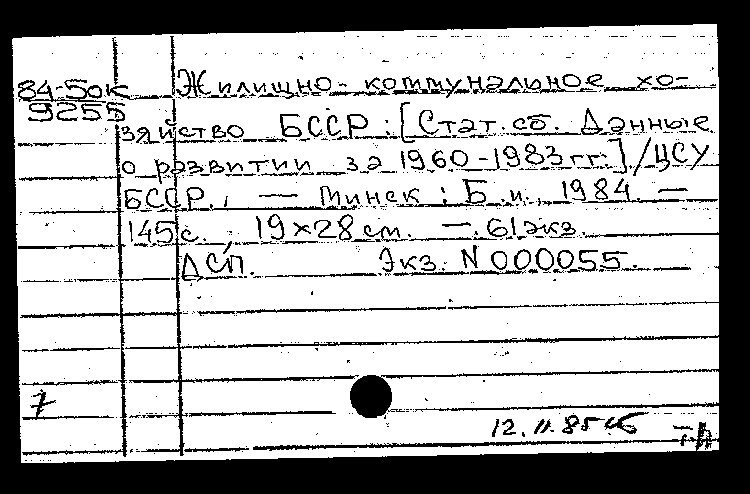 84-5ок Жилищно-коммунальное хо-
9255
зяйство БССР: [Стат. сб. Данные
о развитии за 1960-1983 гг.] / ЦСУ
БССР. — Минск : Б. и., 1984. —
145 с. ; 19×28 см. — 61 экз.
ДСП. Экз. N 000055.
7
12.11.85